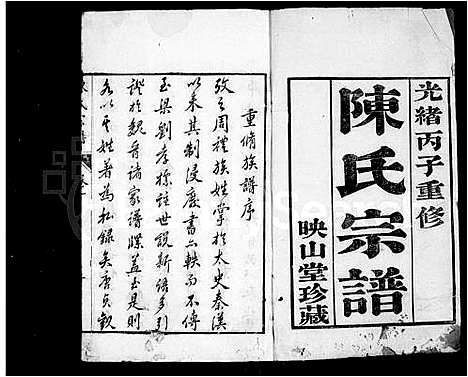 光緒丙子重修
陳氏宗譜
映山堂珍藏
重脩族譜序
攷之周禮族姓掌於太史秦漢
以来其制浸廢書亦軼而不傳
至梁劉孝標註世說新語多列
證於魏晉諸家譜牒蓋至是則
各以其姓著為私錄矣唐貞觀